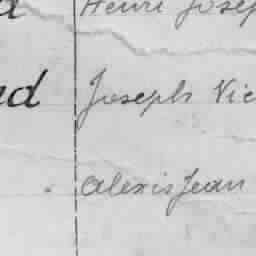 Henri Josep
ed Joseph Vic
Alexis Jean